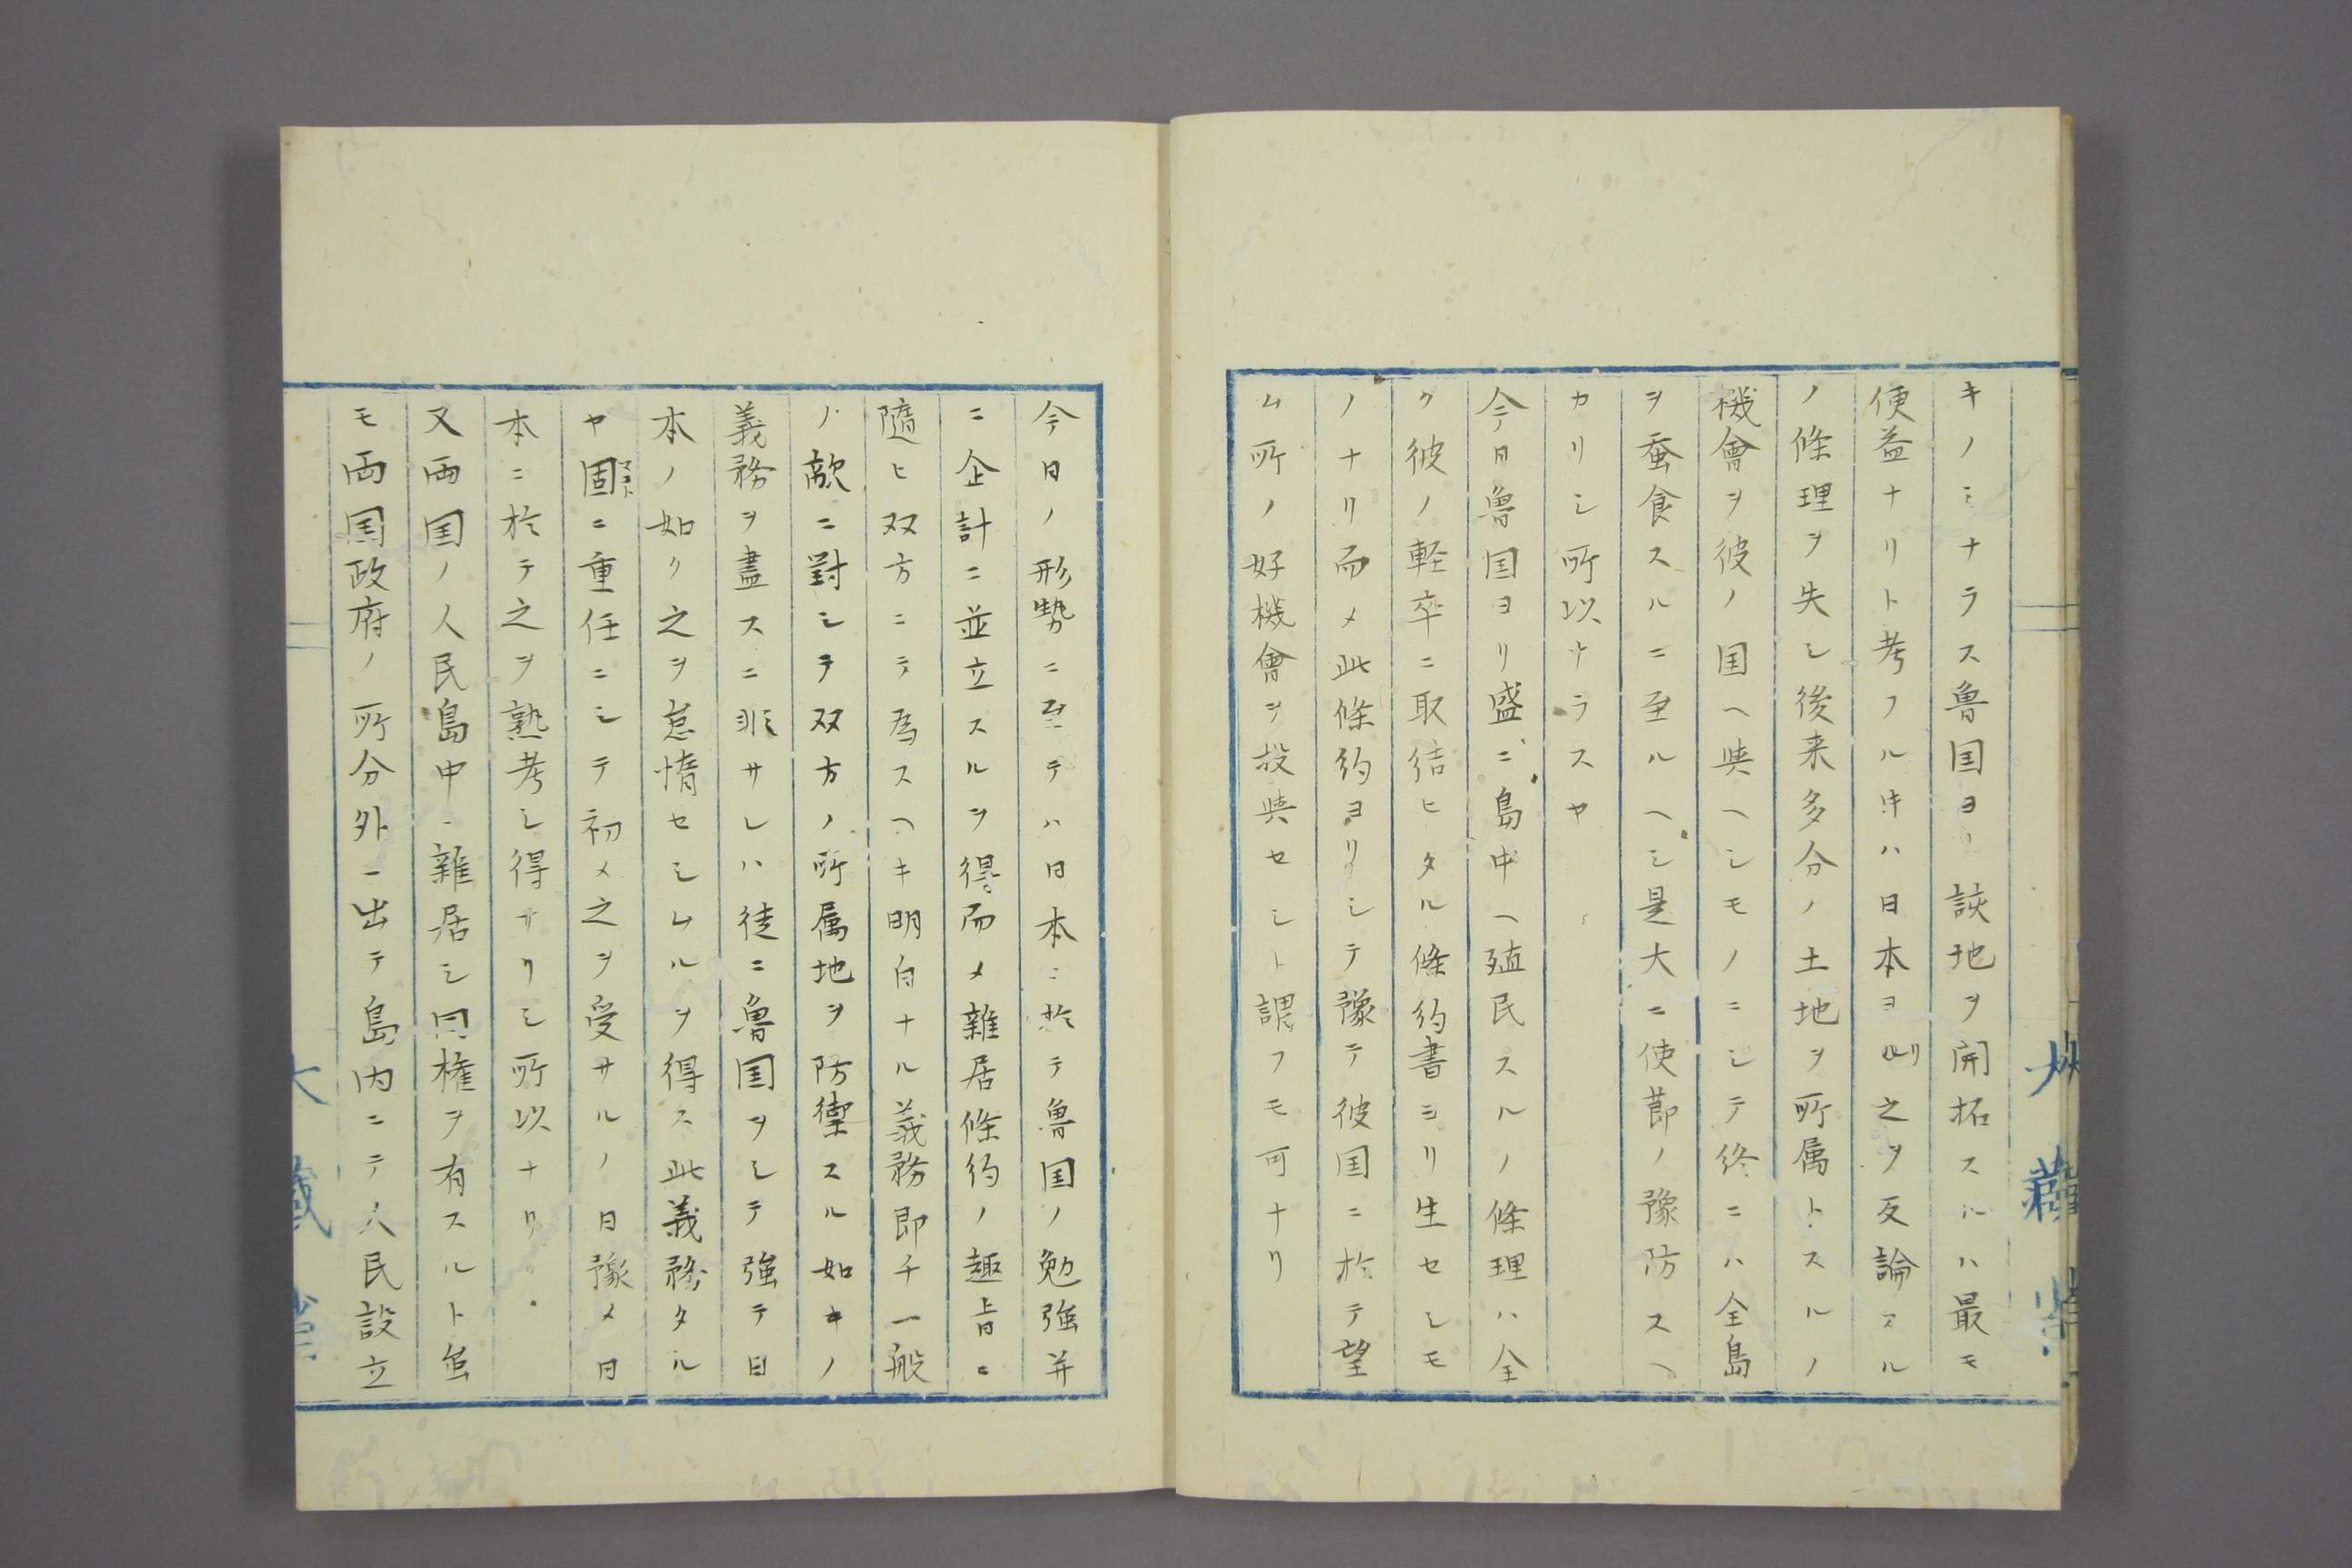 キノミナラス魯国ヨリ該地ヲ開拓スルハ最モ
便益ナリト考フル时ハ日本ヨリ之ヲ反論スル
ノ條理ヲ失シ後来多分ノ土地ヲ所属トスルノ
機會ヲ彼ノ国ヘ與ヘシモノニシテ終ニハ全島
ヲ蚕食スルニ至ルヘシ是大ニ使節ノ豫防スヘ
カリシ所以ナラスヤ
今日魯国ヨリ盛ニ島中ヘ殖民スルノ條理ハ全
ク彼ノ軽卒ニ取結ヒタル條約書ヨリ生セシモ
ノナリ而メ此條約ヨリシテ豫テ彼国ニ於テ望
ム所ノ好機會ヲ投與セシト謂フモ可ナリ
今日ノ形勢ニ至テハ日本ニ於テ魯国ノ勉強并
ニ企計ニ並立スルヲ得而メ雑居條約ノ趣旨ニ
隨ヒ双方ニテ為スヘキ明白ナル義務即チ一般
ノ敵ニ對シテ双方ノ所属地ヲ防禦スル如キノ
義務ヲ盡スニ非サレハ徒ニ魯国ヲシテ強テ日
本ノ如ク之ヲ怠惰セシムルヲ得ス此義務タル
ヤ固マコトニ重任ニシテ初メ之ヲ受サルノ日豫メ日
本ニ於テ之ヲ熟考シ得サリシ所以ナリ
又両国ノ人民島中ニ雑居シ同権ヲ有スルト虽
モ両国政府ノ所分外ニ出テ島内ニテ人民設立
大藏省